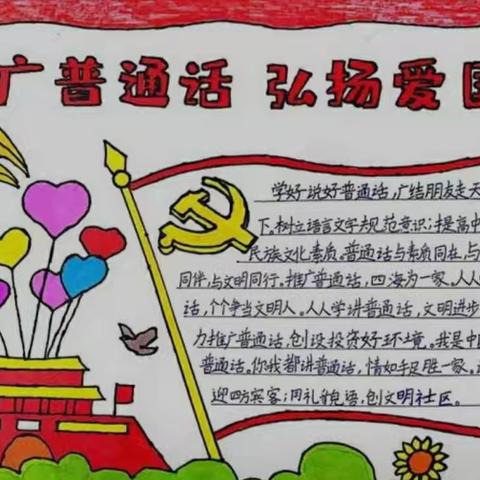 广普通话 弘扬爱国
学好说好普通话,广结朋友走天
下,树立语言文字规范意识;提高中
民族文化素质。普通话与素质同在,与
同伴,与文明同行。推广普通话,四海为一家。人人
话,个个争当文明人。人人学讲普通话,文明进步
力推广普通话,创设投资好环境。我是中
普通话。你我都讲普通话,情如手足胜一家。
迎四方宾客;用礼貌语,创文明社区。